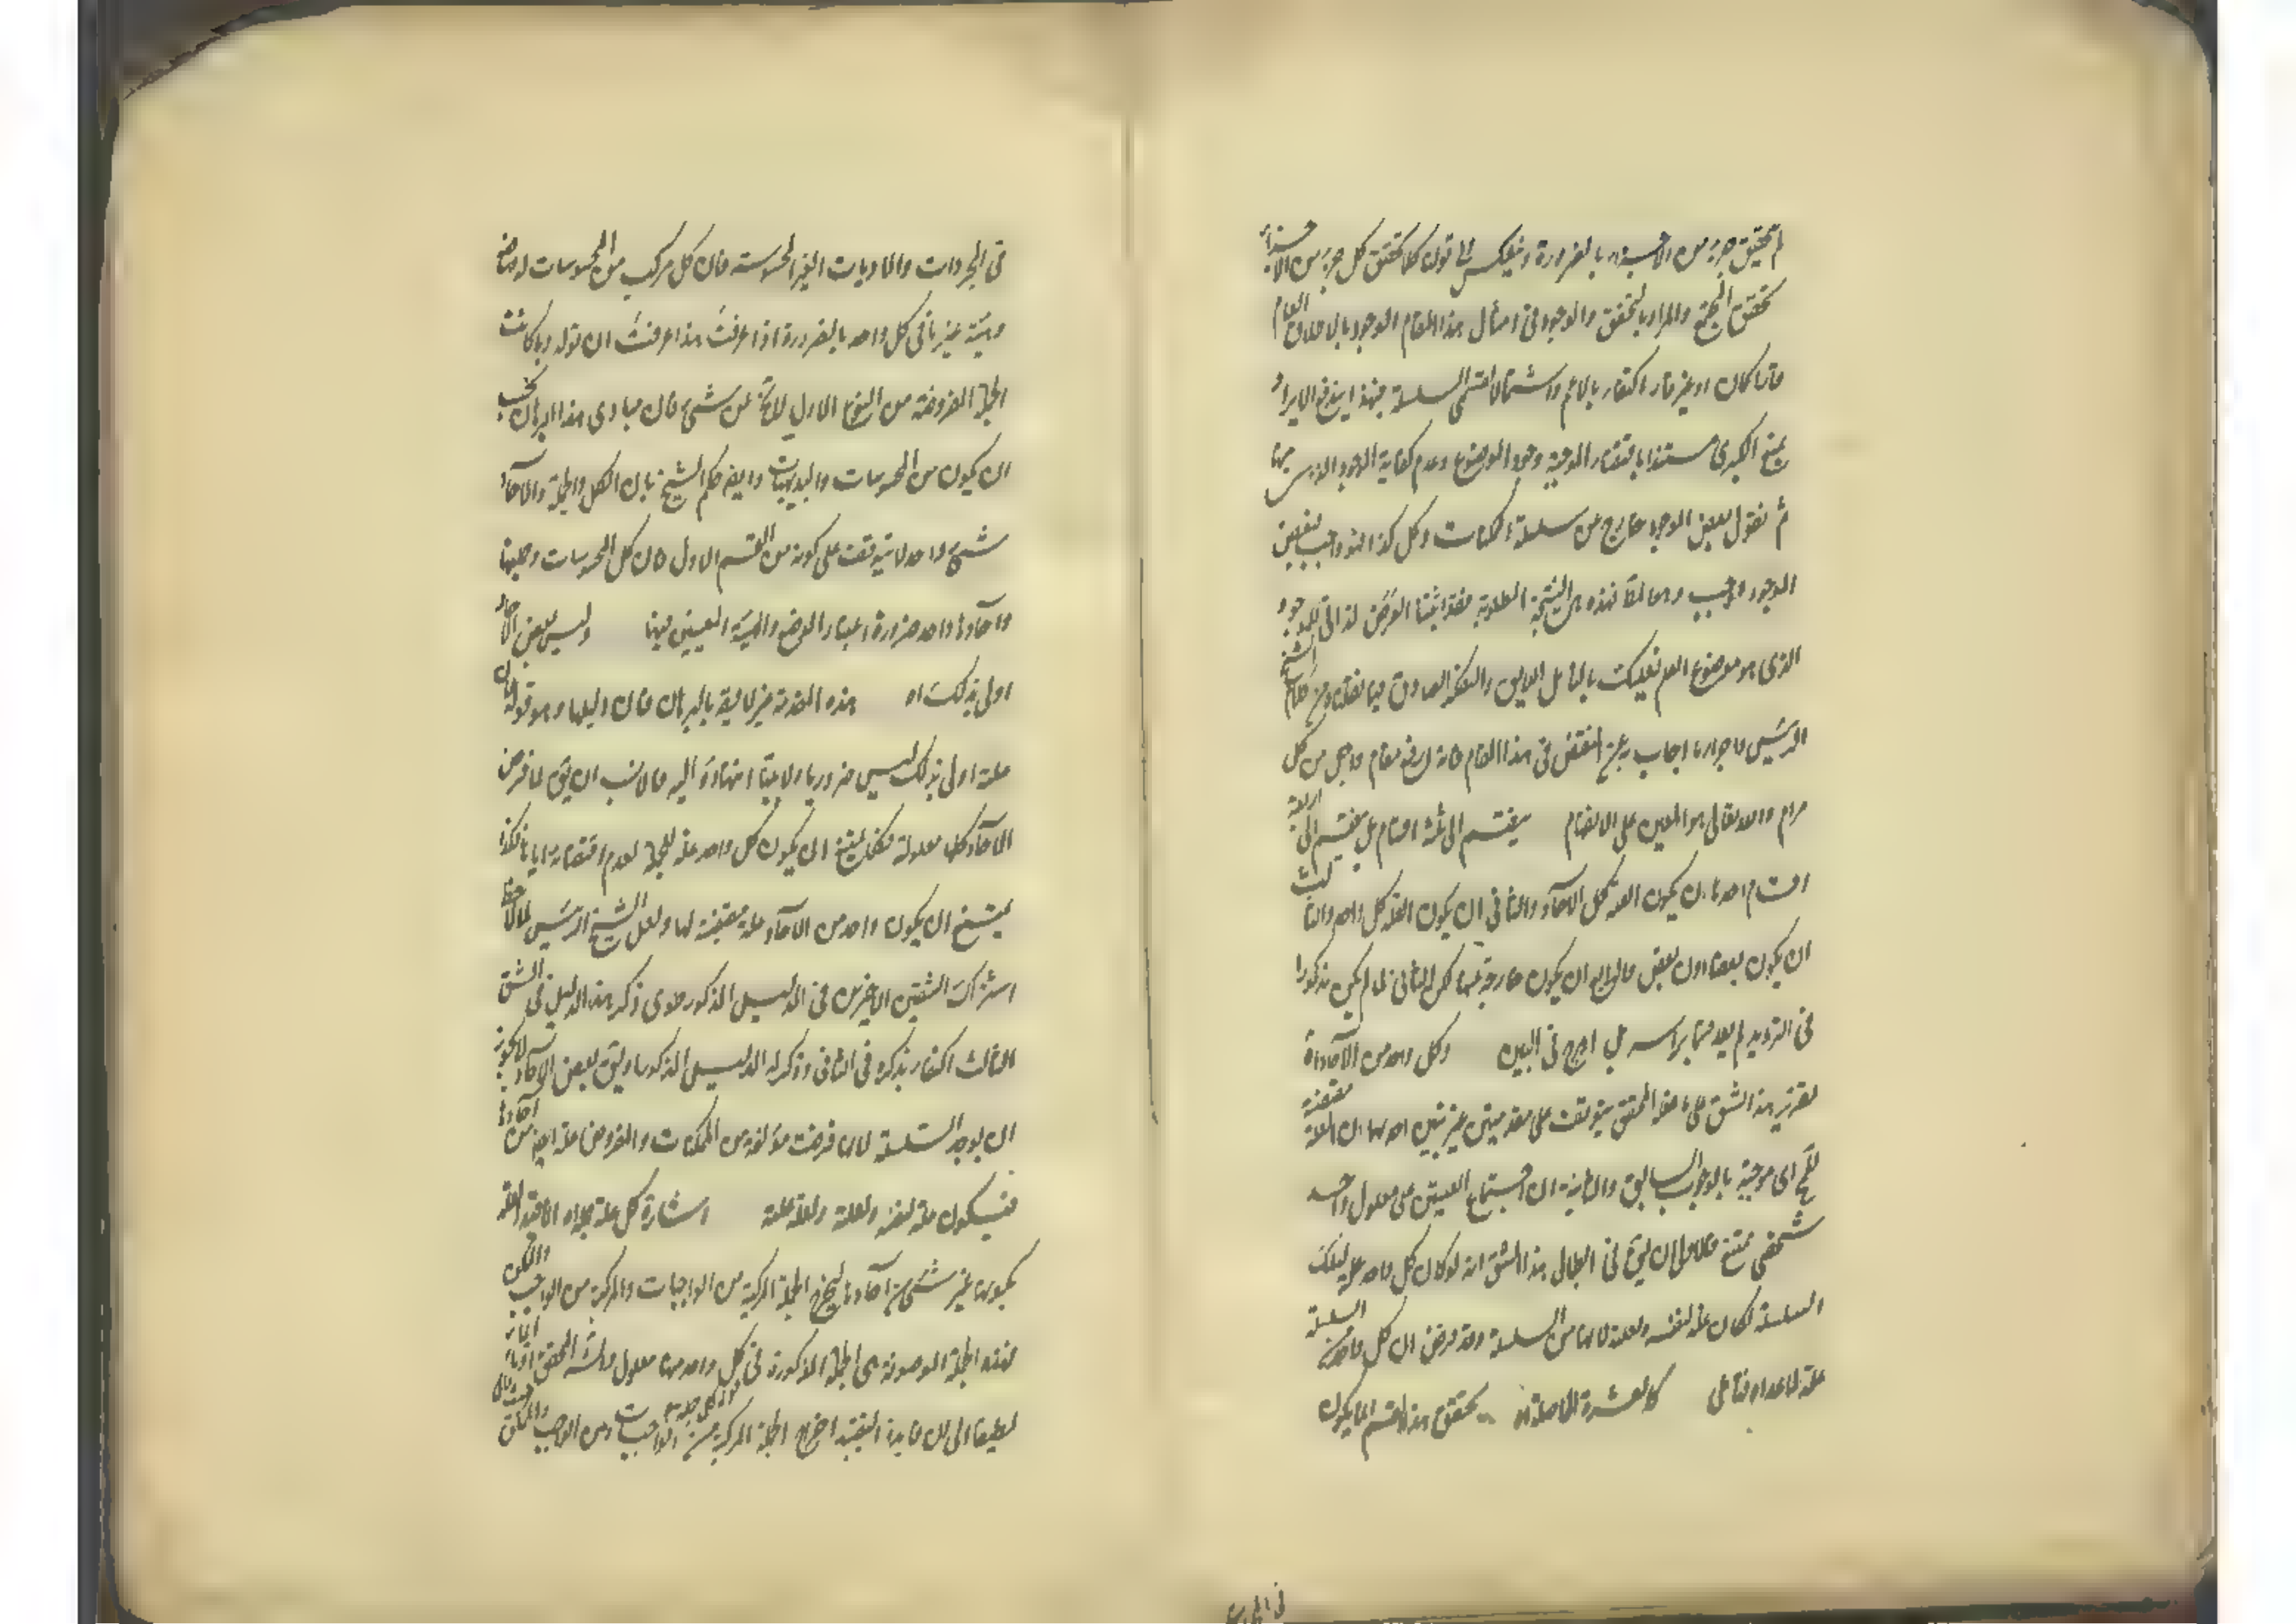 لم يتحقق جزء من الاجزاء بالضرورة وينعكس الى قولنا كلما تحقق كل جزء من الاجزاء
تحقق المجموع والمراد بالتحقق والوجود فى امثال هذا المقام الوجود بالاطلاق العام
قارا كان او غير قار اكتفاء بالاعم واشتمالا لقسمى السلسلة فبهذا يندفع الايراد
بمنع الكبرى مستندا باقتضاء الموجبة وجود الموضوع وعدم كفاية الوجود
ثم نقول بعض الوجود خارج عن سلسلة الممكنات وكل كذا فهو واجب فبعض
الوجود واجب وهذه هى النتيجة المطلوبة فقد اثبتنا العرض الذاتى للموجود
الذى هو موضوع العلم فعليك بالتأمل الفايق والفكر الصادق فيما نقلناه من كلام الشيخ
الرئيس فى هذا المقام فانه ارفع مقام واجل من كل
مرام والله تعالى هو المعين على الافهام ينقسم الى ثلثة اقسام بل ينقسم الى اربعة
اقسام احدها ان يكون العلة كل الآحاد والثانى ان يكون العلة كل واحد والثالث
ان يكون بعضا دون بعض والرابع ان يكون خارجة عنها لكن الثانى لما لم يكن مذكورا
فى الترديد لم يعد قسما برأسه بل ادرج فى البين وكل واحد من الآحاد اه
تقرير هذا الشق على المحقق يتوقف على مقدمتين غير بينتين احدهما ان العلة مقتضية
اى موجبة بالوجوب السابق والثانية ان اجتماع العلتين على معلول واحد
شخصى ممتنع فالاولى ان يق فى ابطال هذا الشق انه لو كان كل واحد علة لتلك
السلسلة لكان علة لنفسه ولعلته لانهما من السلسلة وقد فرض ان كل واحد من السلسلة
علة لما عداه فتأمل كالعشرة الحاصلة اه تحقق هذا القسم انما يكون
فى المجردات والماديات الغير المحسوسة فان كل مركب من المحسوسات له وضع
وهيئة غير ما فى كل واحد بالضرورة اذا عرفت هذا عرفت ان قوله وما كانت
الجملة المفروضة من النوع الاول لا يخ عن شىء فان مبادى هذا البرهان يجب
ان يكون من المحسوسات والبديهيات وايضا حكم الشيخ بان الكل والجملة والآحاد
شىء واحد لا يتوقف على كونه من القسم الاول فان كل المحسوسات وجملتها
وآحادها واحد ضرورة اعتبار الوضع والهيئة المعينين فيها وليس بعض الآحاد
اولى بذلك اه هذه المقدمة غير لايقة بالبرهان فان دليلها وهو قوله لان
علته اولى بذلك ليس ضروريا ولا بينا انتهاؤه اليه فالانسب ان يق لما فرض
الآحاد كلها معلولة فكما يمتنع ان يكون كل واحد علة للجملة لعدم اقتضائه اياها فكذا
يمتنع ان يكون واحد من الآحاد علة مقتضية لها ولعل الشيخ الرئيس لما لاحظ
اشتراك الشقين الاخيرين فى الدليل المذكور طوى ذكر هذا الدليل فى الشق
الثالث اكتفاء بذكره فى الثانى وذكر له الدليل المذكور او يق بعض الآحاد لا يجوز
ان يوجد السلسلة لانها فرضت مؤلفة من الممكنات والمفروض علة ايضا من آحادها
فيكون علة لنفسه ولعلته ولعلة علته اشارة كل علة جملة اه انما قيد العلة
بكونها غير شىء من آحادها ليخرج الجملة المركبة من الواجبات والمركبة من الواجب والممكن
فهذه الجملة الموصوفة هى الجملة المذكورة فى كل واحد منها معلول واشار المحقق اشارة
لطيفة الى ان فايدة التقييد اخراج الجملة المركبة من الواجبات ومن الواجب والممكن